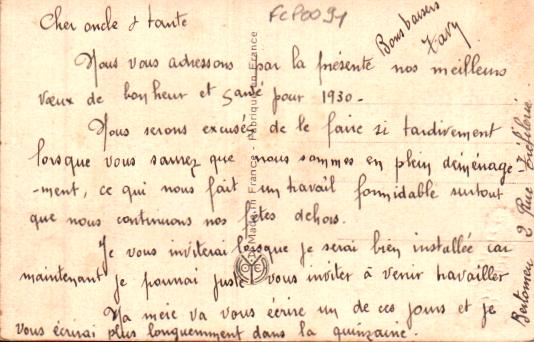 Cher oncle & tante
FCP0094
Bons baisers
Xavy
Nous vous adressons par la présente nos meilleurs
vœux de bonheur et santé pour 1930.
Nous serons excusés de le faire si tardivement
lorsque vous saurez que nous sommes en plein déménage-
-ment, ce qui nous fait un travail formidable surtout
que nous continuons nos dehors.
Je vous inviterai lorsque je serai bien installée car
maintenant je pourrai juste vous inviter à venir travailler
Ma mère va vous écrire un de ces jours et je
vous écrirai plus longuement dans la quinzaine.
Made in France - Fabriqué en France
Bertomeu 2 Rue